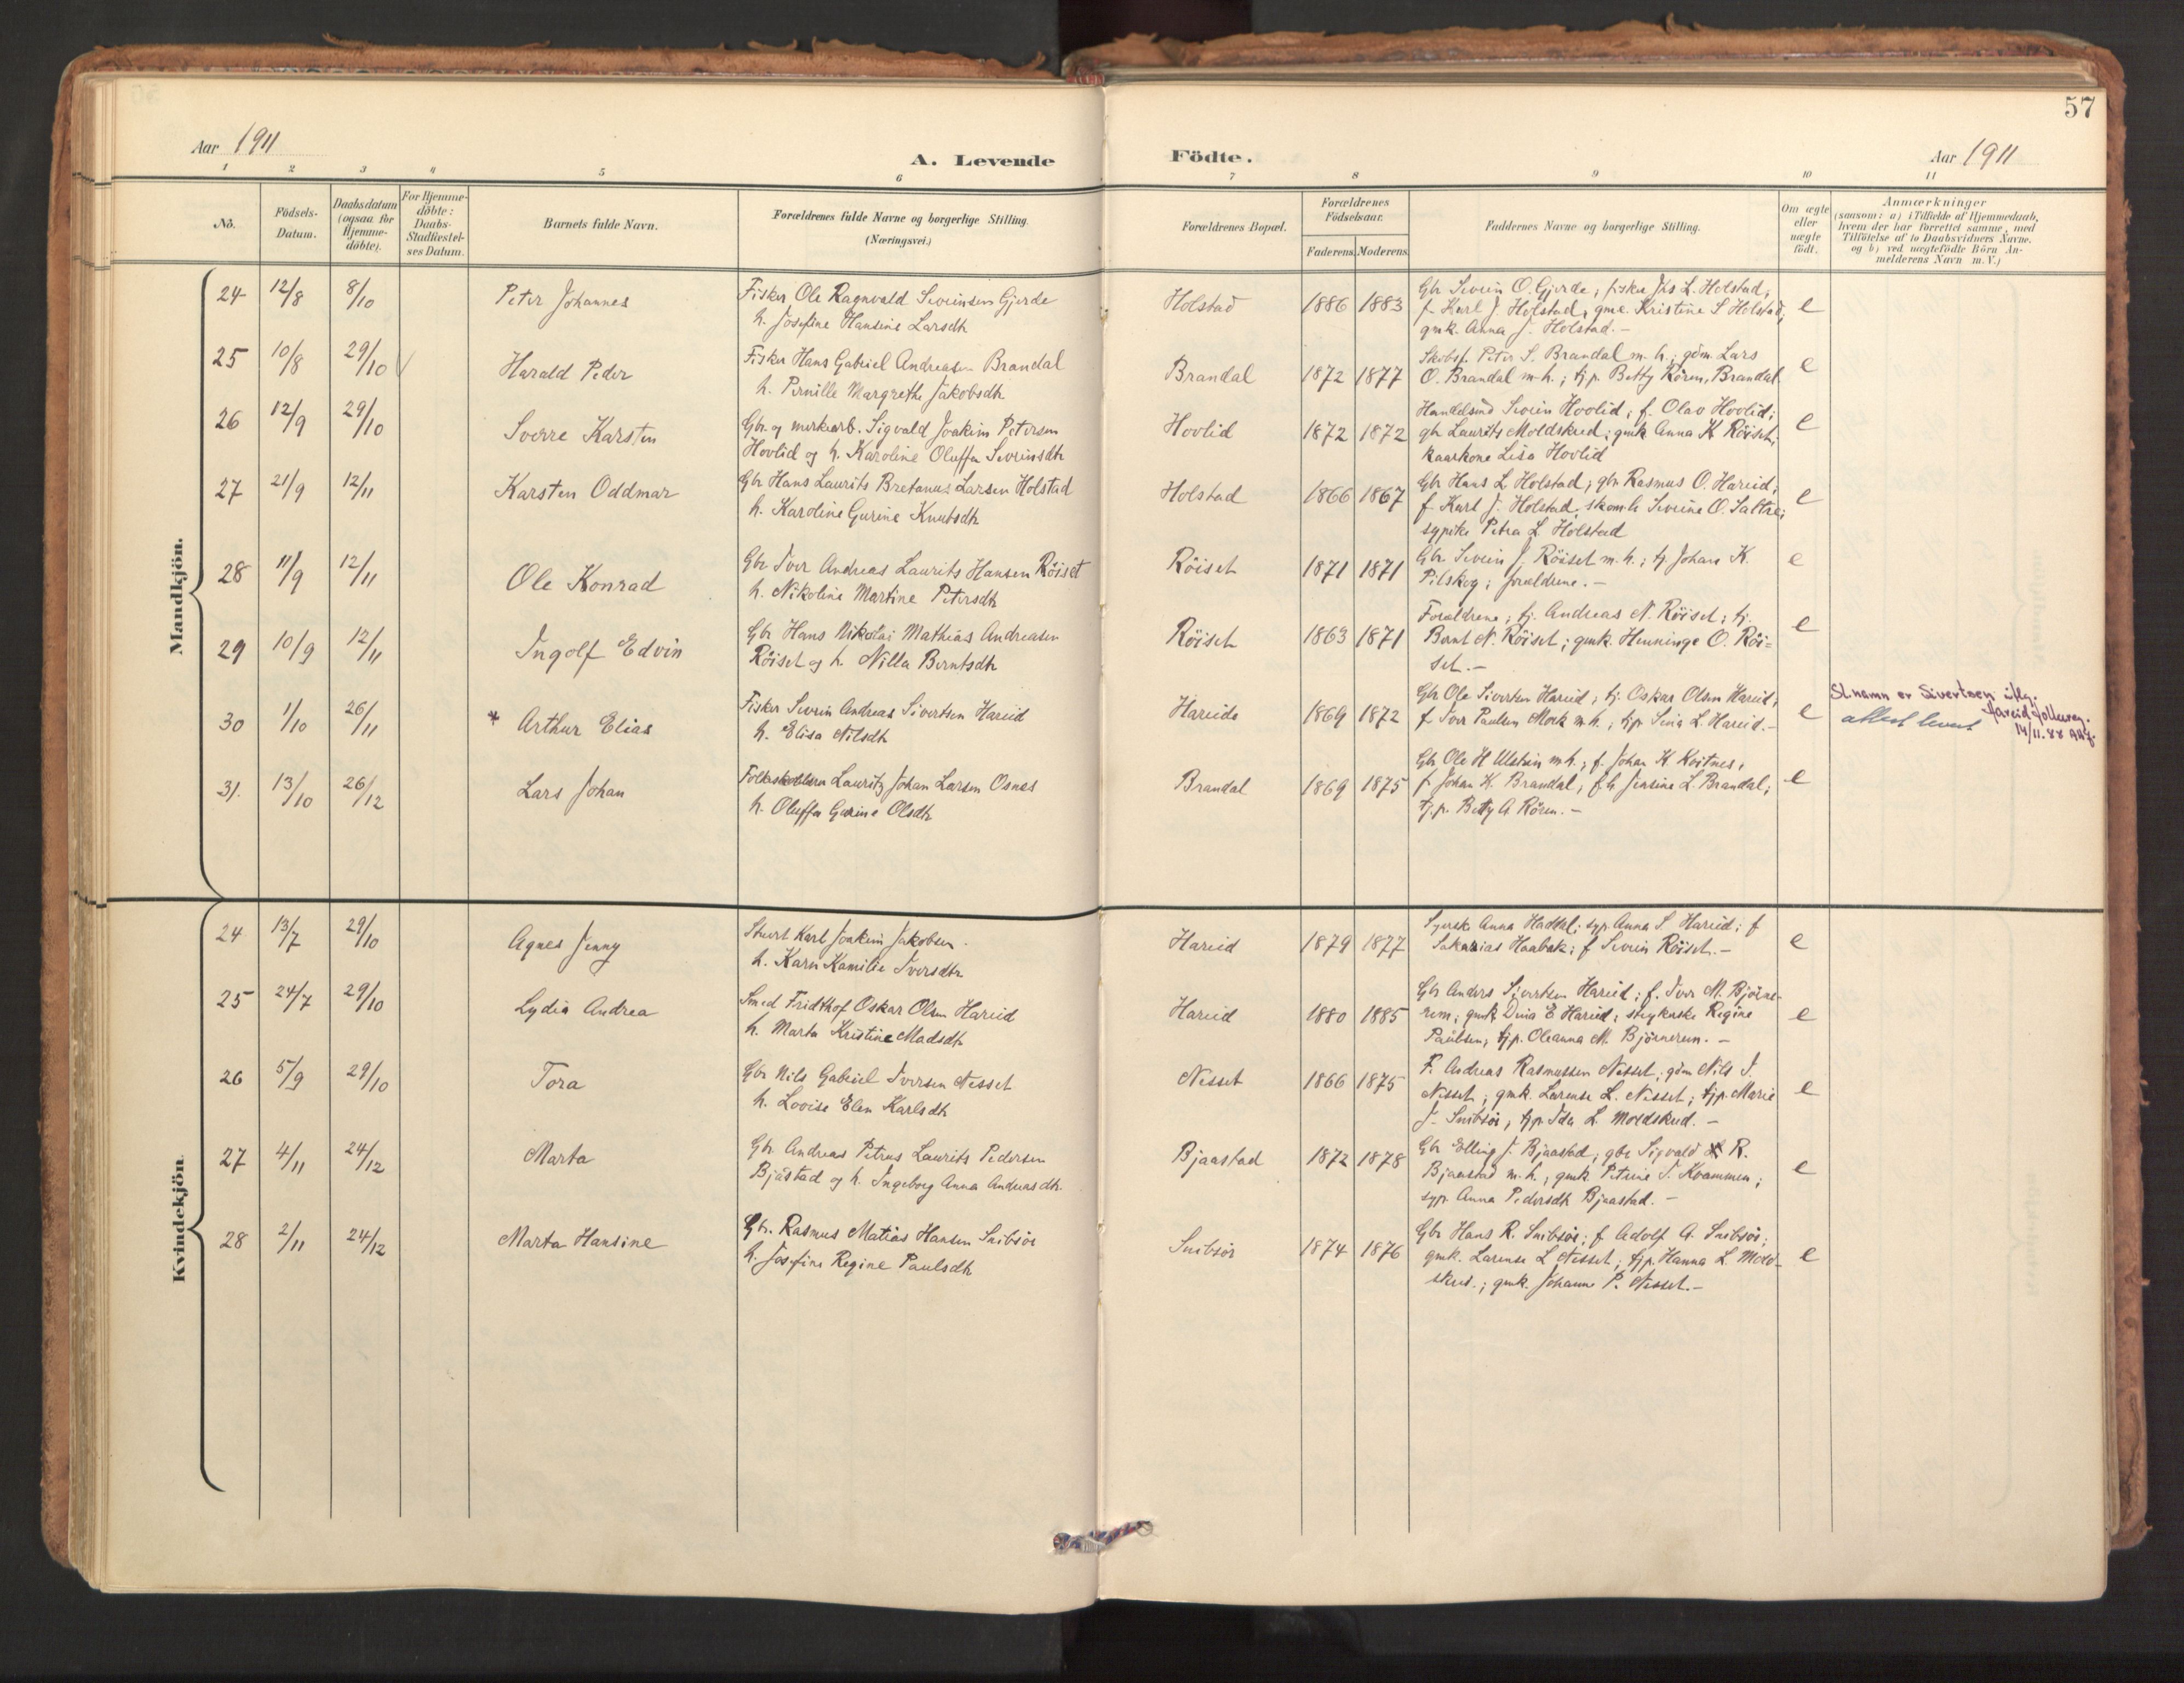 57
Aar 1911
A. Levende
Födte.
Aar 1911
1 2 3 4 5 6 7 8 9 10 11
No.
Födsels-Datum.
Daabsdatum (ogsaa for Hjemme-döbte).
For Hjemme-döbte: Daabs-Stadfæstel-ses Datum.
Barnets fulde Navn.
Forældrenes fulde Navne og borgerlige Stilling. (Næringsvei.)
Forældrenes Bopæl.
Forældrenes Födselsaar.
Faderens. Moderens.
Faddernes Navne og borgerlige Stilling.
Om ægte eller uægte födt.
Anmærkninger
(saasom: a) i Tilfælde af Hjemmedaab,
hvem der har forrettet samme, med
Tilföielse af to Daabsvidners Navne.
og b) ved uægtefödte Börn An-
melderens Navn m. V.)
Mandkjön.
24 12/8 8/10 Peter Johannes
Fisker Ole Ragnvald Severinsen Gjerde
h. Josefine Hansine Larsdtr
Holstad 1886 1883
Gbr Severin O. Gjerde; fisker Jhs L. Holstad;
f Karl J. Holstad, gmk. Kristine S Holstad,
gmk. Anna J. Holstad.- e
25 10/8 29/10 Harald Peder
Fisker Hans Gabriel Andreasen Brandal
h. Pernille Margrethe Jakobsdtr
Brandal 1872 1877
Peter S. Brandal m. h.; gdm. Lars
O. Brandal m. h.; tj.p. Betty Rören, Brandal. e
26 12/9 29/10 Sverre Karsten
Gbr. og merkarb. Sigvald Joakim Petersen
Hovlid og h. Karoline Oluffa Severinsdtr
Hovlid 1872 1872
Severin Hovlid; f. Olav Hovlid;
gbr Laurits Moldskred; gmk Anna K Röiset;
kaarkone Lisa Hovlid e
27 21/9 12/11 Karsten Oddmar
Gbr Hans Laurits Bretanus Larsen Holstad
h. Karoline Gurine Knutsdtr
Holstad 1866 1867
Gbr Hans L Holstad; gbr Rasmus O. Hareid;
f Karl J. Holstad, Severine O. Saltre;
sypike Petra L Holstad e
28 11/9 12/11 Ole Konrad
Gbr Iver Andreas Laurits Hansen Röiset
h. Nikoline Martine Petersdtr
Röiset 1871 1871
Gbr. Severin J. Röiset m. h.; tj Johan K.
Pilskog; forældrene.- e
29 10/9 12/11 Ingolf Edvin
Gbr Hans Nikolai Mathias Andreasen
Röiset og h. Nilla Berntsdtr
Röiset 1863 1871
Forældrene; tj. Andreas N. Röiset; tj.
Bernt N. Röiset; gmk. Henninge O. Röi-
set.- e
30 1/10 26/11 * Arthur Elias
Fisker Severin Andreas Sivertsen Hareid
h. Elisa Nilsdtr
Hareide 1869 1872
Gbr Ole Sivertsen Hareid; tj. Oskar Olsen Hareid;
f Iver Paulsen Mork m. h.; tjp Sina L. Hareid.- e
Sl.namn er Sivertsen iflg.
Hareid folkereg.
14/11.88
attest levert
31. 13/10 26/12 Lars Johan
Lauritz Johan Larsen Osnes
h. Oluffa Gurine Olsdtr
Brandal 1869 1875
Gbr Ole H Ulstein m h; f. Johan K Kvitnes;
f Johan K. Brandal; f.h Jensine L. Brandal;
tj.p. Betty A. Rören.- e
Kvindekjön.
24 13/7 29/10 Agnes Jenny
Karl Joakim Jakobsen.
h. Karn Kamilie Iversdtr
Hareid 1879 1877
Anna Haddal; syp. Anna S. Hareid; f
Sakarias Haabak; f Severin Röiset.- e
25 24/7 29/10 Lydia Andrea
Smed Fridthof Oskar Olsen Hareid
h. Marta Kristine Madsdtr
Hareid 1880 1885
Gbr Anders Sivertsen Hareid; f. Iver M. Björne-
rem; gmk Dina E Hareid; Regine
Paulsen; tj.p. Oleanna M. Björnerem.- e
26 5/9 29/10 Tora
Gbr Nils Gabriel Iversen Nesset
h. Lovise Elen Karlsdtr
Nesset 1866 1875
F. Andreas Rasmussen Nesset; gdm Nils I.
Nesset; gmk. Larense L. Nesset; tjp. Marie
J. Snibsör; tjp Ida L. Moldskred.- e
27 4/11 24/12 Marta
Gbr. Andreas Petrus Laurits Pedersen
Bjåstad og h. Ingeborg Anna Andreasdtr.
Bjaastad 1872 1878
Gbr Elling J. Bjaastad; gbr Sigvald R.
Bjaastad m. h.; gmk Petrine I. Kvammen;
syp. Anna Pedersdtr Bjaastad.- e
28 2/11 24/12 Marta Hansine
Gbr. Rasmus Matias Hansen Snibsör
h. Josefine Regine Paulsdtr
Snibsör 1874 1876
Gbr Hans R. Snibsör; f Adolf A. Snibsör;
gmk. Larense L Nesset; tjp. Hanna L. Mold-
skred.; gmk. Johanne P. Nesset.- e